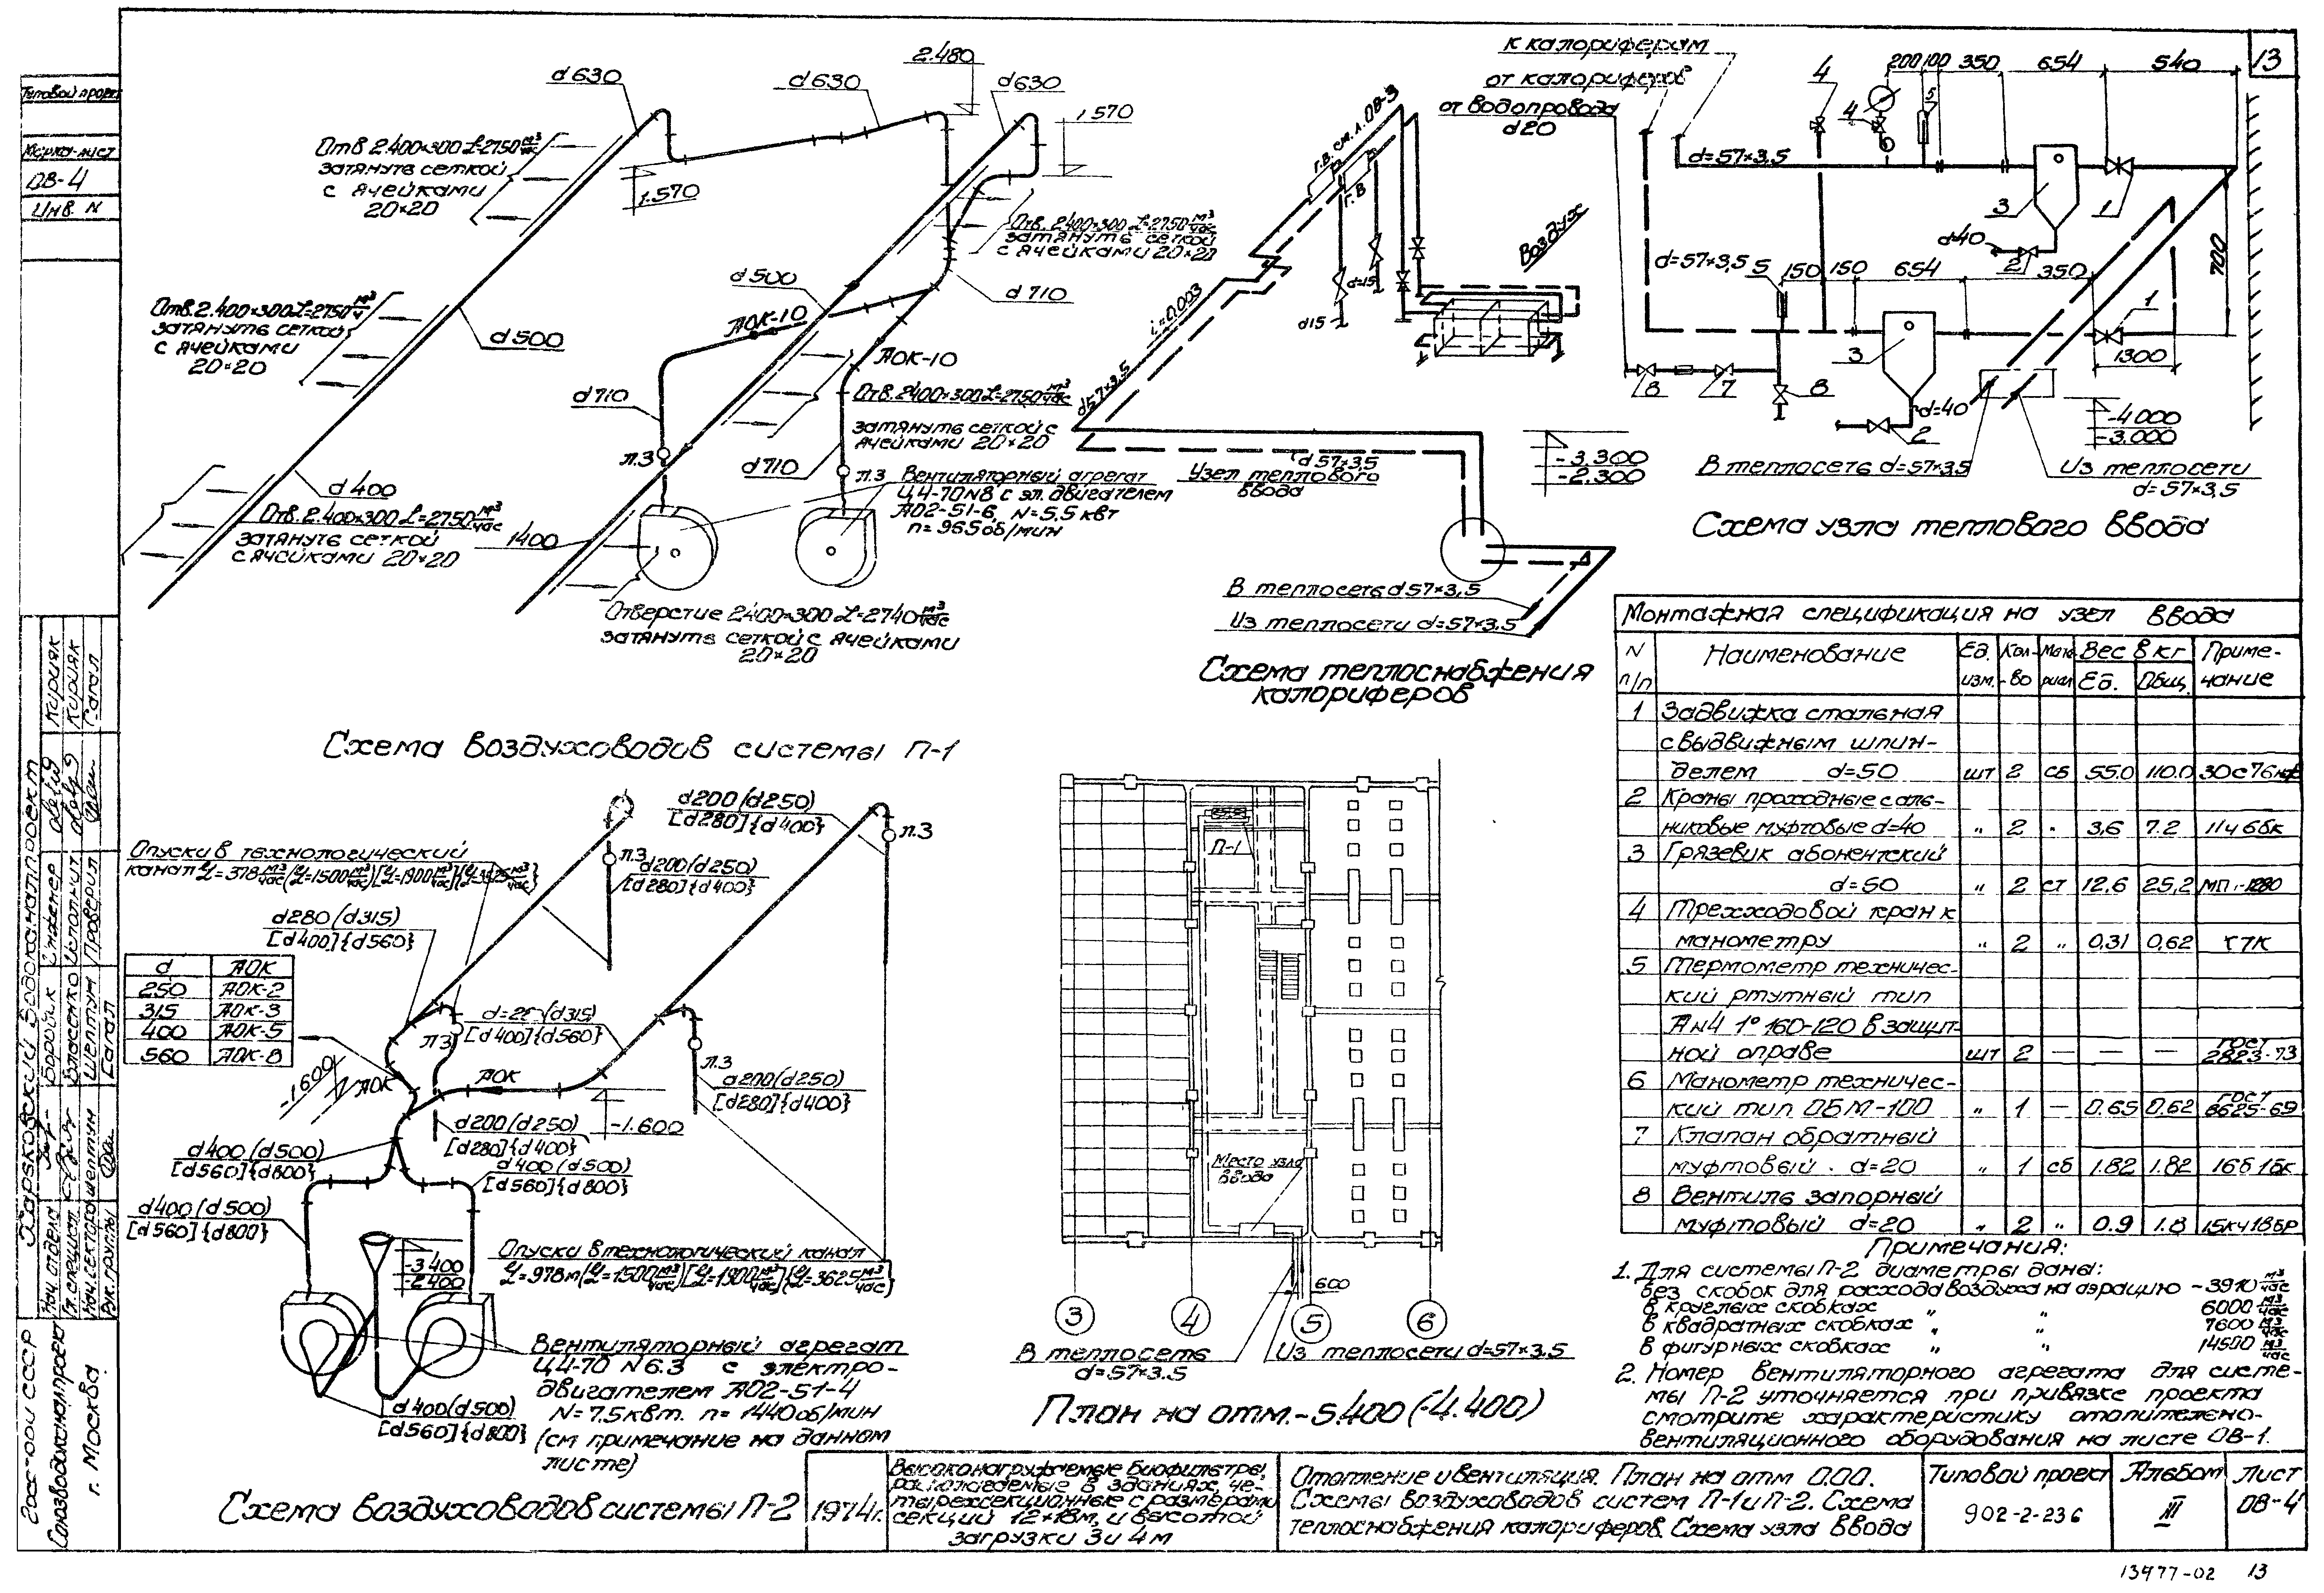 13
Типовой проект
Марка-лист
ОВ-4
Инв. N
d 630
d 630
2.480
d 630
1.570
1.570
Отв. 2.400×300 L=2750 м³/час
затянуть сеткой
с ячейками
20×20
Отв. 2400×300 L=2750 м³/час
затянуть сеткой
с ячейками 20×20
d 500
d 710
АОК-10
Отв. 2.400×300 L=2750 м³/ч
затянуть сеткой
с ячейками
20×20
d 500
АОК-10
d 710
Отв. 2400×300 L=2750 м³/час
затянуть сеткой с
ячейками 20×20
л.3
d 710
л.3
d 400
Отв. 2.400×300 L=2750 м³/час
затянуть сеткой
с ячейками 20×20
1400
Вентиляторный агрегат
Ц4-70 N8 с эл. двигателем
АО2-51-6, N=5,5 квт
n=965 об/мин
Отверстие 2400×300 L=2740 м³/час
затянуть сеткой с ячейками
20×20
Схема воздуховодов системы П-1
Г.В. см. л. ОВ-3
Г.В
Воздух
d=15
d15
i=0.003
d57×3,5
d57×3,5
Узел теплового
ввода
-3.300
-2.300
В теплосеть d57×3,5
Из теплосети d=57×3.5
Схема теплоснабжения
калориферов
к калориферам
от калориферов
от водопровода
d20
4
4
5
200 100 350 654 540
d=57×3,5
3
1
d=40
2
d=57×3,5
5
150 150 654 350
700
1
3
1300
8
7
8
d=40
2
-4.000
-3.000
В теплосеть d=57×3.5
Из теплосети
d=57×3,5
Схема узла теплового ввода
Монтажная спецификация на узел ввода
N п/п Наименование Ед. изм. Кол-во Материал Вес в кг Ед. Общ. Примечание
1 Задвижка стальная
с выдвижным шпин-
делем d=50 шт 2 сб 55.0 110.0 30с76нж
2 Краны проходные саль-
никовые муфтовые d=40 " 2 " 3,6 7.2 11ч6бк
3 Грязевик абонентский
d=50 " 2 ст 12,6 25,2 МП -1280
4 Трехходовой кран к
манометру " 2 " 0,31 0,62 КТК
5 Термометр техничес-
кий ртутный тип
А N4 1° 160-120 в защит-
ной оправе шт 2 — — — ГОСТ 2823-73
6 Манометр техничес-
кий тип ОБМ-100 " 1 — 0.65 0.62 ГОСТ 8625-69
7 Клапан обратный
муфтовый. d=20 " 1 сб 1.82 1.82 16б1бк
8 Вентиль запорный
муфтовый d=20 " 2 " 0.9 1.8 15кч18бр
Примечания:
1. Для системы П-2 диаметры даны:
без скобок для расхода воздуха на аэрацию - 3910 м³/час
в круглых скобках " " 6000 м³/час
в квадратных скобках " " 7600 м³/час
в фигурных скобках " " 14500 м³/час
2. Номер вентиляторного агрегата для систе-
мы П-2 уточняется при привязке проекта
смотрите характеристику отопительно-
вентиляционного оборудования на листе ОВ-1.
d200 (d250)
[d280]{d400}
л.3
Опуски в технологический
канал
л.3
d200 (d250)
[d280]{d400}
d280 (d315)
[d400]{d560}
d АОК
250 АОК-2
315 АОК-3
400 АОК-5
560 АОК-8
(d315)
[d400]{d560}
л.3
л.3
-1.600
АОК
АОК
d200 (d250)
[d280]{d400}
-1.600
d200 (d250)
[d280]{d400}
d400 (d500)
[d560]{d800}
d400 (d500)
[d560]{d800}
d400 (d500)
[d560]{d800}
-3.400
-2.400
Опуски в технологический канал
Вентиляторный агрегат
Ц4-70 N6.3 с электро-
двигателем АО2-51-4
N=7.5 квт. n=1440 об/мин
(см примечание на данном
листе)
d400 (d500)
[d560]{d800}
Схема воздуховодов системы П-2
П-1
Место узла
ввода
600
3
4
5
6
В теплосеть
d=57×3.5
Из теплосети d=57×3.5
План на отм. -5.400 (-4.400)
Харьковский Водоканалпроект
Нач. отдела Бородик Инженер Кирияк
Гл. специал. Власенко Исполнит Кирияк
Нач. сектора Шептун Шептун Проверил Сагал
Рук. группы Сагал
Госстрой СССР
Союзводоканалпроект
г. Москва
1974г.
Высоконагружаемые биофильтры,
располагаемые в зданиях, че-
тырехсекционные с размерами
секций 12×18м, и высотой
загрузки 3 и 4 м
Отопление и вентиляция. План на отм 0.00.
Схемы воздуховодов систем П-1 и П-2. Схема
теплоснабжения калориферов. Схема узла ввода
Типовой проект
902-2-236
Альбом
III
Лист
ОВ-4
13477-02 13